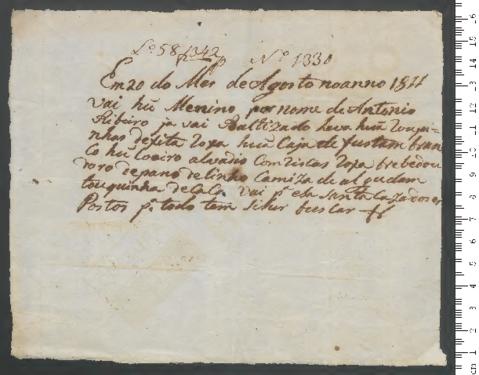 Lo 58 f 342 No 1330
Em 20 do Mes de Agosto no anno 1811
vai hũ Menino por nome de Antonio
Ribeiro ja vai Baltizado leva hũa
nhas de fita Roxa hũa de fustam bran
co hũ Coeiro alvadio Com Riscas Roxa
de pano de linho Camiza de algudam
touquinha de Vai pa esa Santa Caza
Portos pa todo tem buscar